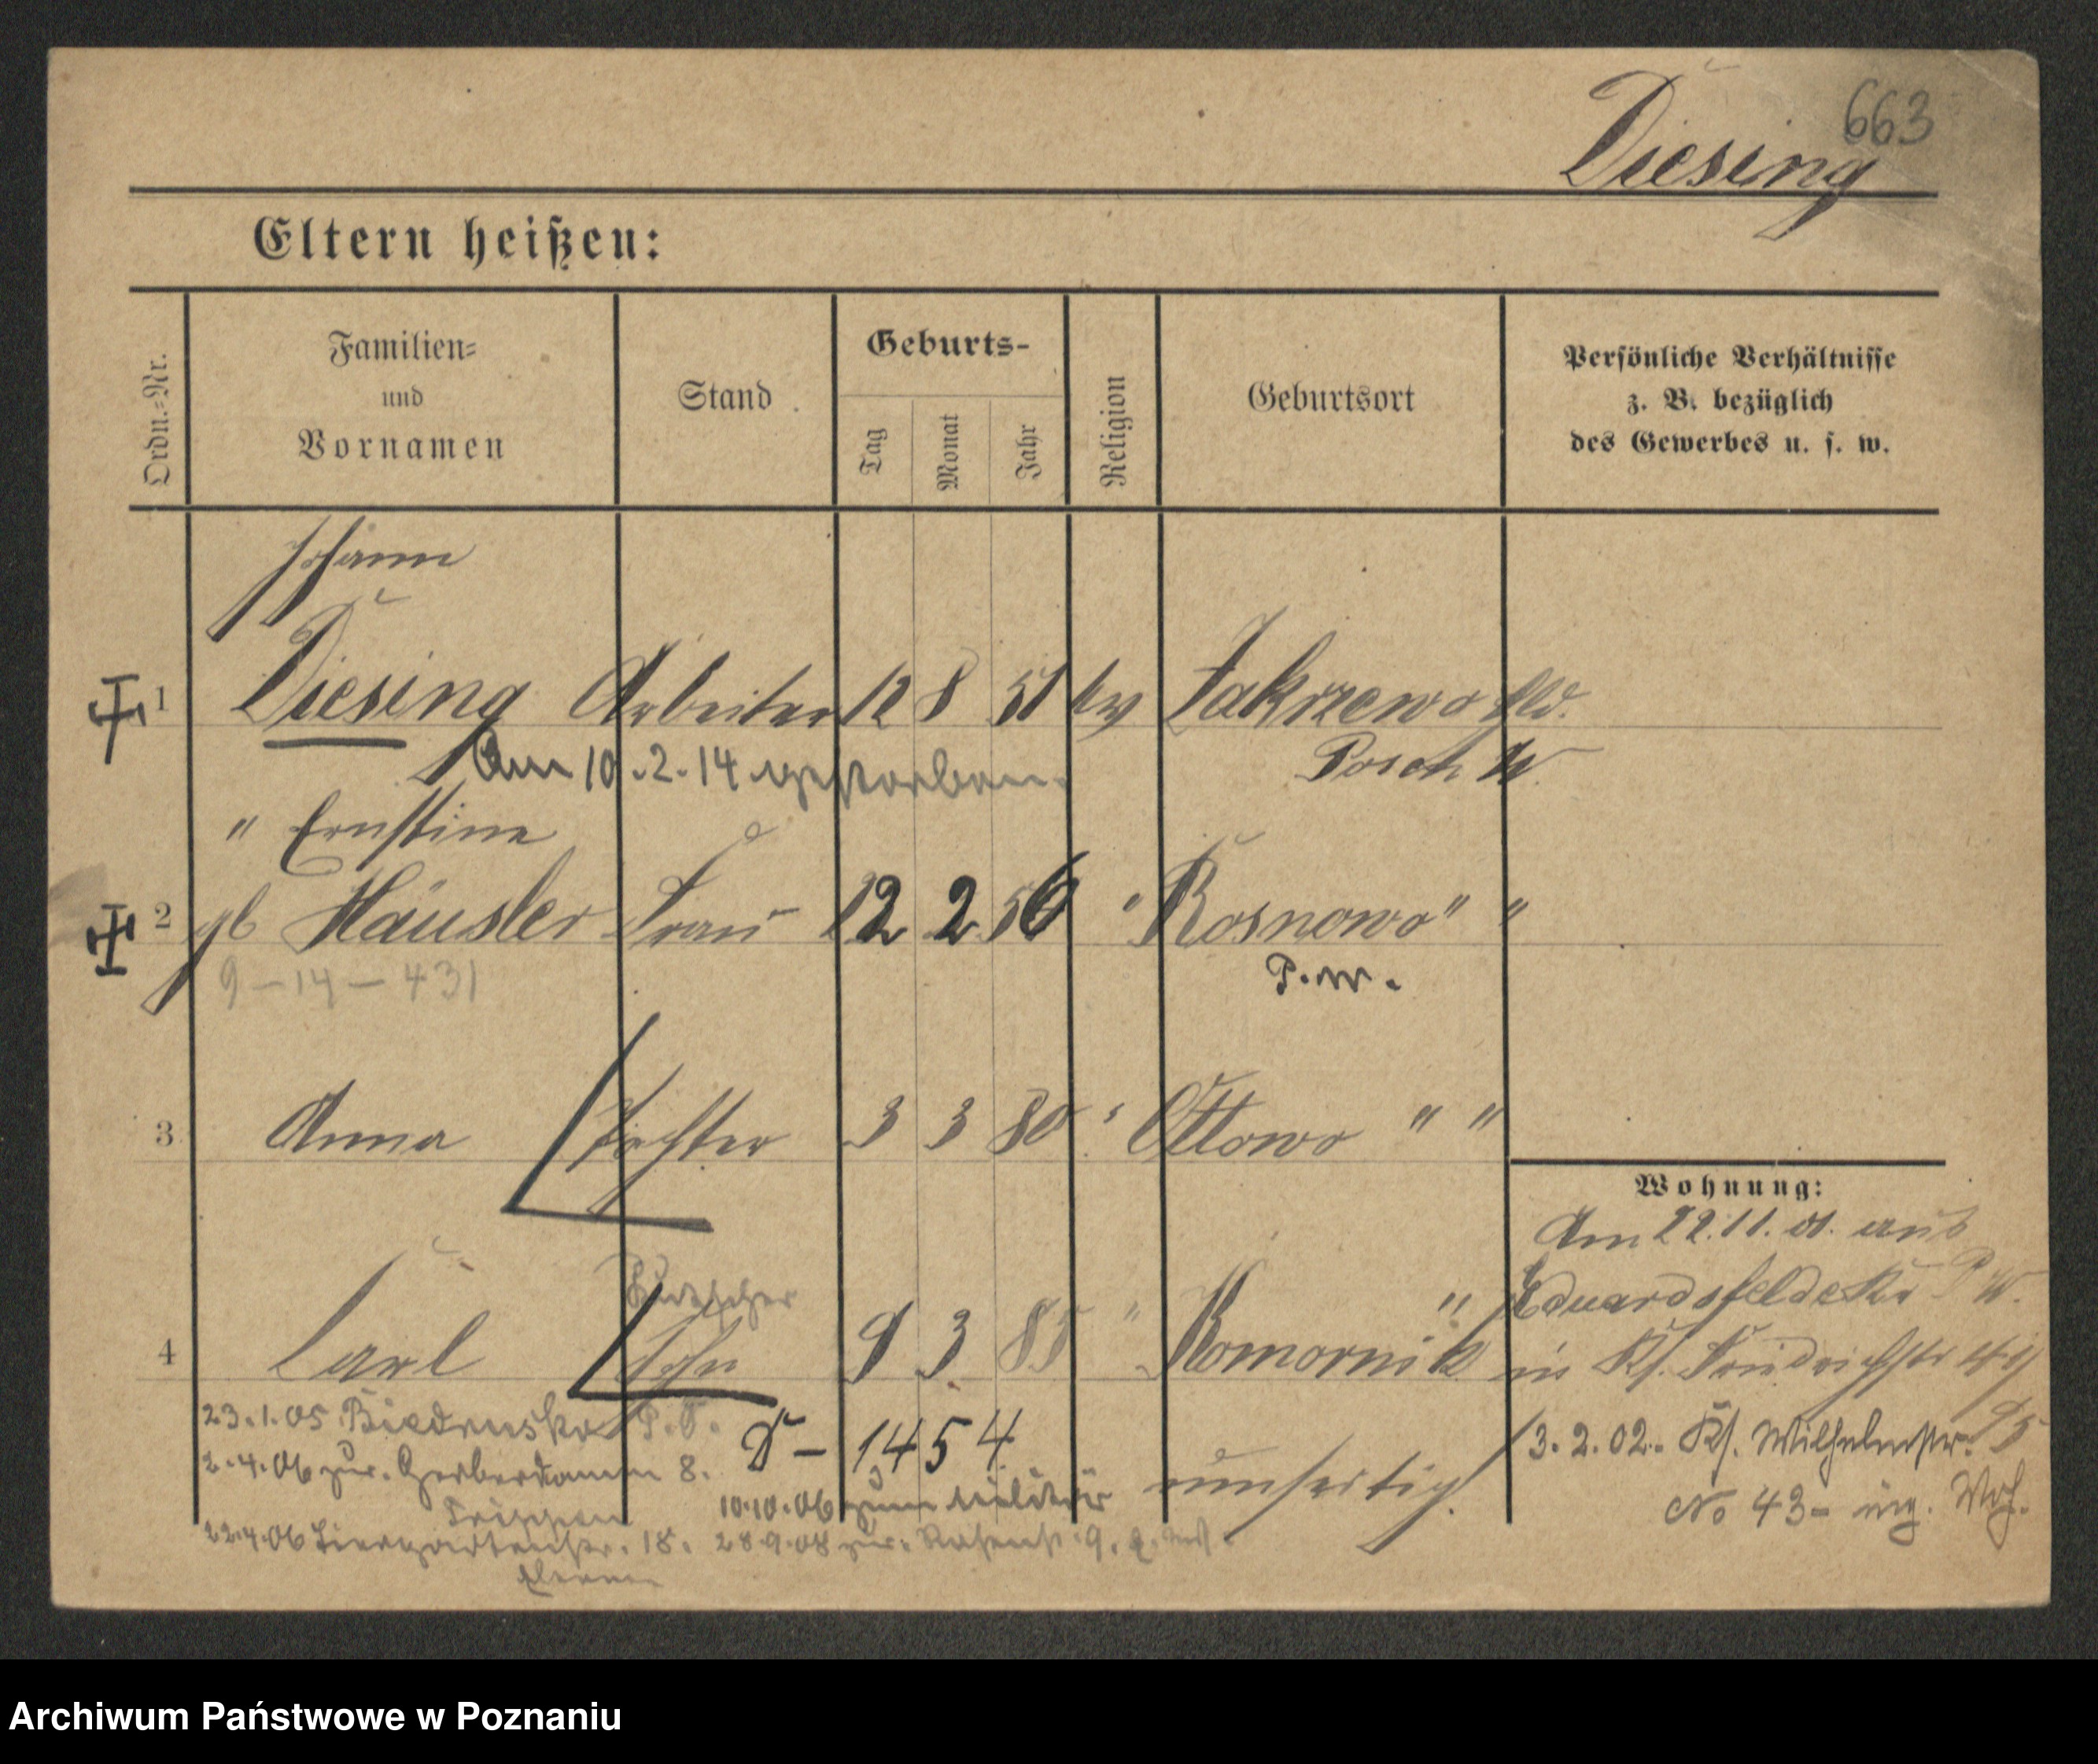 663
Diesing
Eltern heißen:
Ordn.-Nr.
Familien-
und
Vornamen
Stand
Geburts-
Tag
Monat
Jahr
Religion
Geburtsort
Persönliche Verhältnisse
z. B. bezüglich
des Gewerbes u. s. w.
Johann
1 Diesing Arbeiter 12 8 51 ev Zakrzewo
Posen W.
Am 10.2.14 gestorben.
" Ernstine
2 gb Häusler Frau 12 2 56 " Rosnowo " "
9-14-431 P.W.
3 Anna Tochter 3 3 80 " Ottowo " "
Wohnung:
Am 22.11.01. aus
Kutscher
Eduardsfelde P. W.
4 Carl Sohn 9 3 85 " Komornik "
in Ks. Friedrichstr
23.1.05 Biedrusko P.O.
D - 1454
13.2.02. Ks. Wilhelmstr.
2.4.06 zur. Gerberdamm 8.
unfertig.
10.10.06 zum Militär
No 43-
22.4.06 Tiergartenstr. 18. 28.9.08 zur. 9.